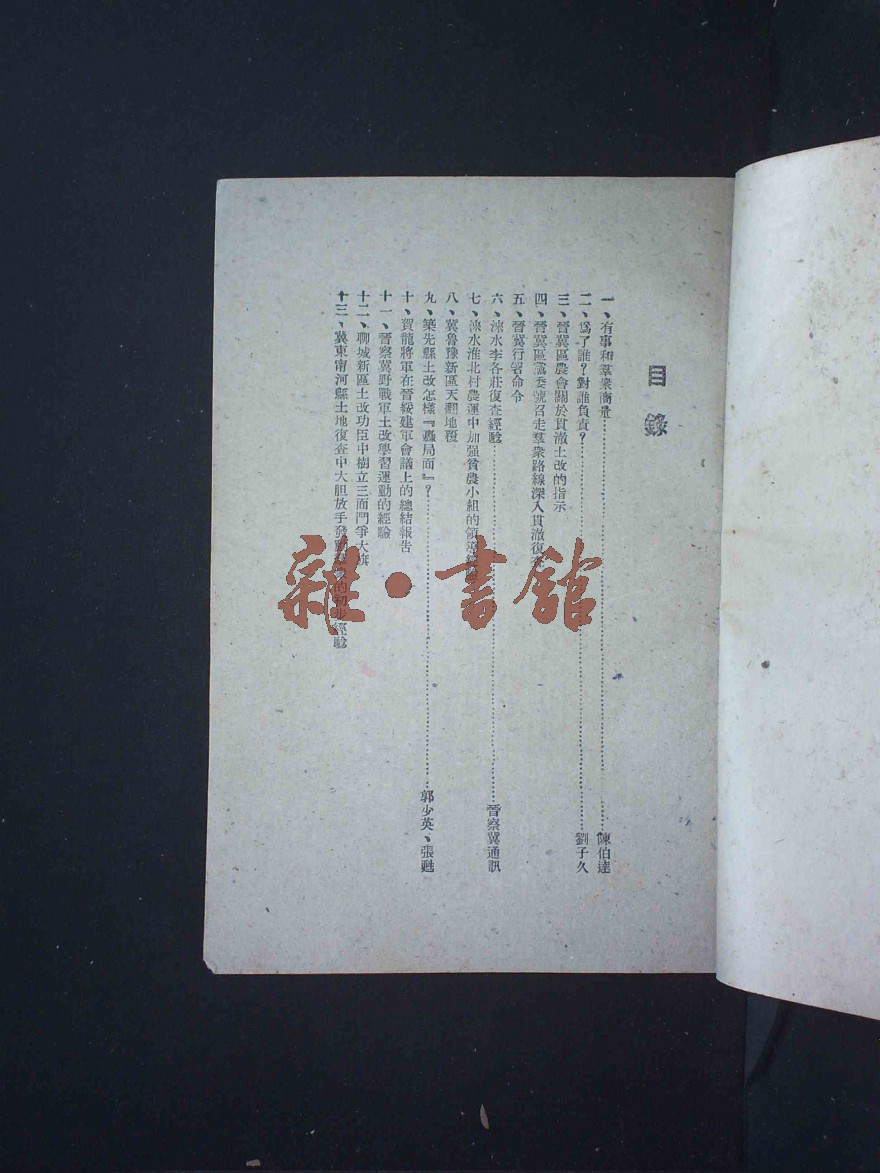 目錄
一、有事和羣衆商量……陳伯達
二、爲了誰？對誰負責？……劉子久
三、晉冀區農會關於貫澈土改的指示
四、晉冀區黨委號召走羣衆路線深入貫澈復查
五、晉冀行署命令
六、淶水李各莊復查經驗……晉察冀通訊
七、淶水淮北村農運中加强貧農小組的領導
八、冀魯豫新區天翻地覆
九、築先縣土改怎樣『轟局面』？……郭少英、張甦
十、賀龍將軍在晉綏建軍會議上的總結報告
十一、晉察冀野戰軍土改學習運動的經驗
十二、聊城新區土改功臣中樹立三面鬥爭大旗
十三、冀東甯河縣土地復查中大胆放手發動的初步經驗
雜·書館